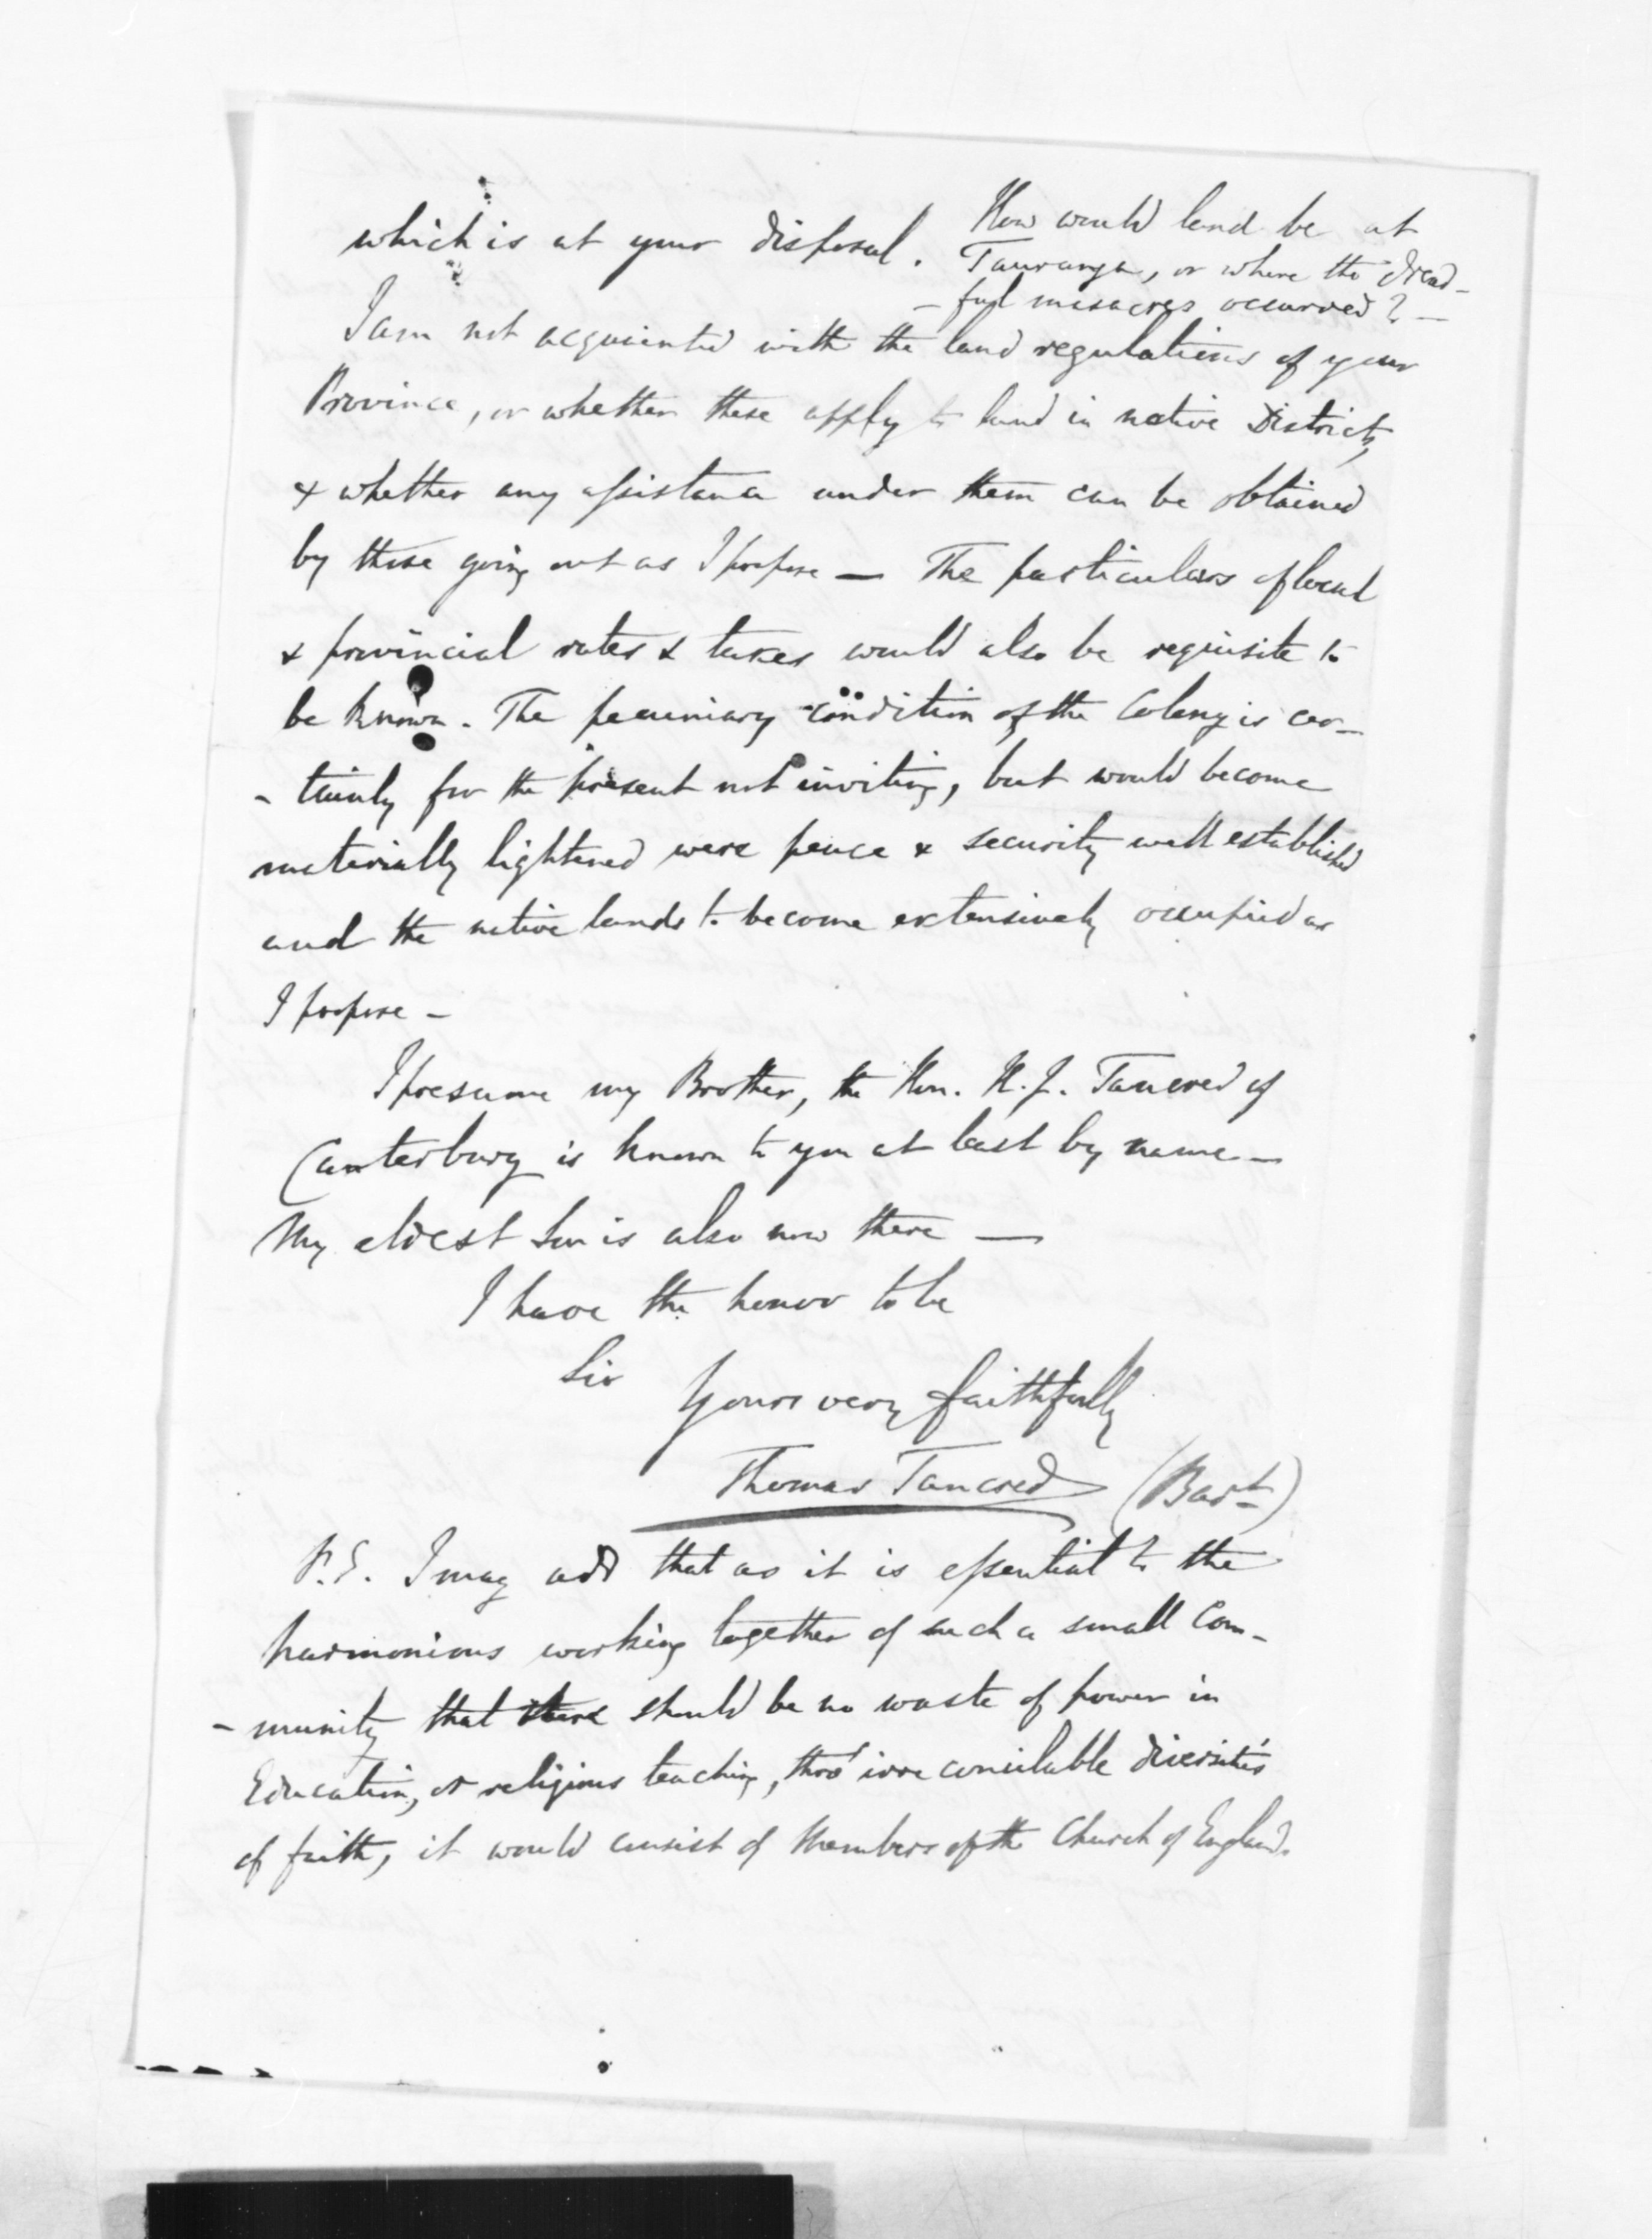 which is at your disposal. How would land be at
Tauranga, or where the dread-
- ful masacres occurred? -
I am not acquainted with the land regulations of your
Province, or whether these apply to land in native Districts,
& whether any assistance under them can be obtained
by those going out as I propose — The particulars of local
& provincial rates & taxes would also be requisite to
be known. The pecuniary condition of the Colony is cer-
- tainly for the present not inviting, but would become
materially lightened were peace & security well established
and the native lands to become extensively occupied as
I propose -
I presume my Brother, the Hon. H. J. Tancred of
Canterbury is known to you at least by name —
My eldest Son is also now there —
I have the honor to be
Sir
Yours very faithfully
Thomas Tancred (Bart)
P.S. I may add that as it is essential to the
harmonious working together of such a small Com-
- munity that there should be no waste of power in
Education, or religious teaching, thro' irreconcilable diversities
of faith, it would consist of Members of the Church of England.